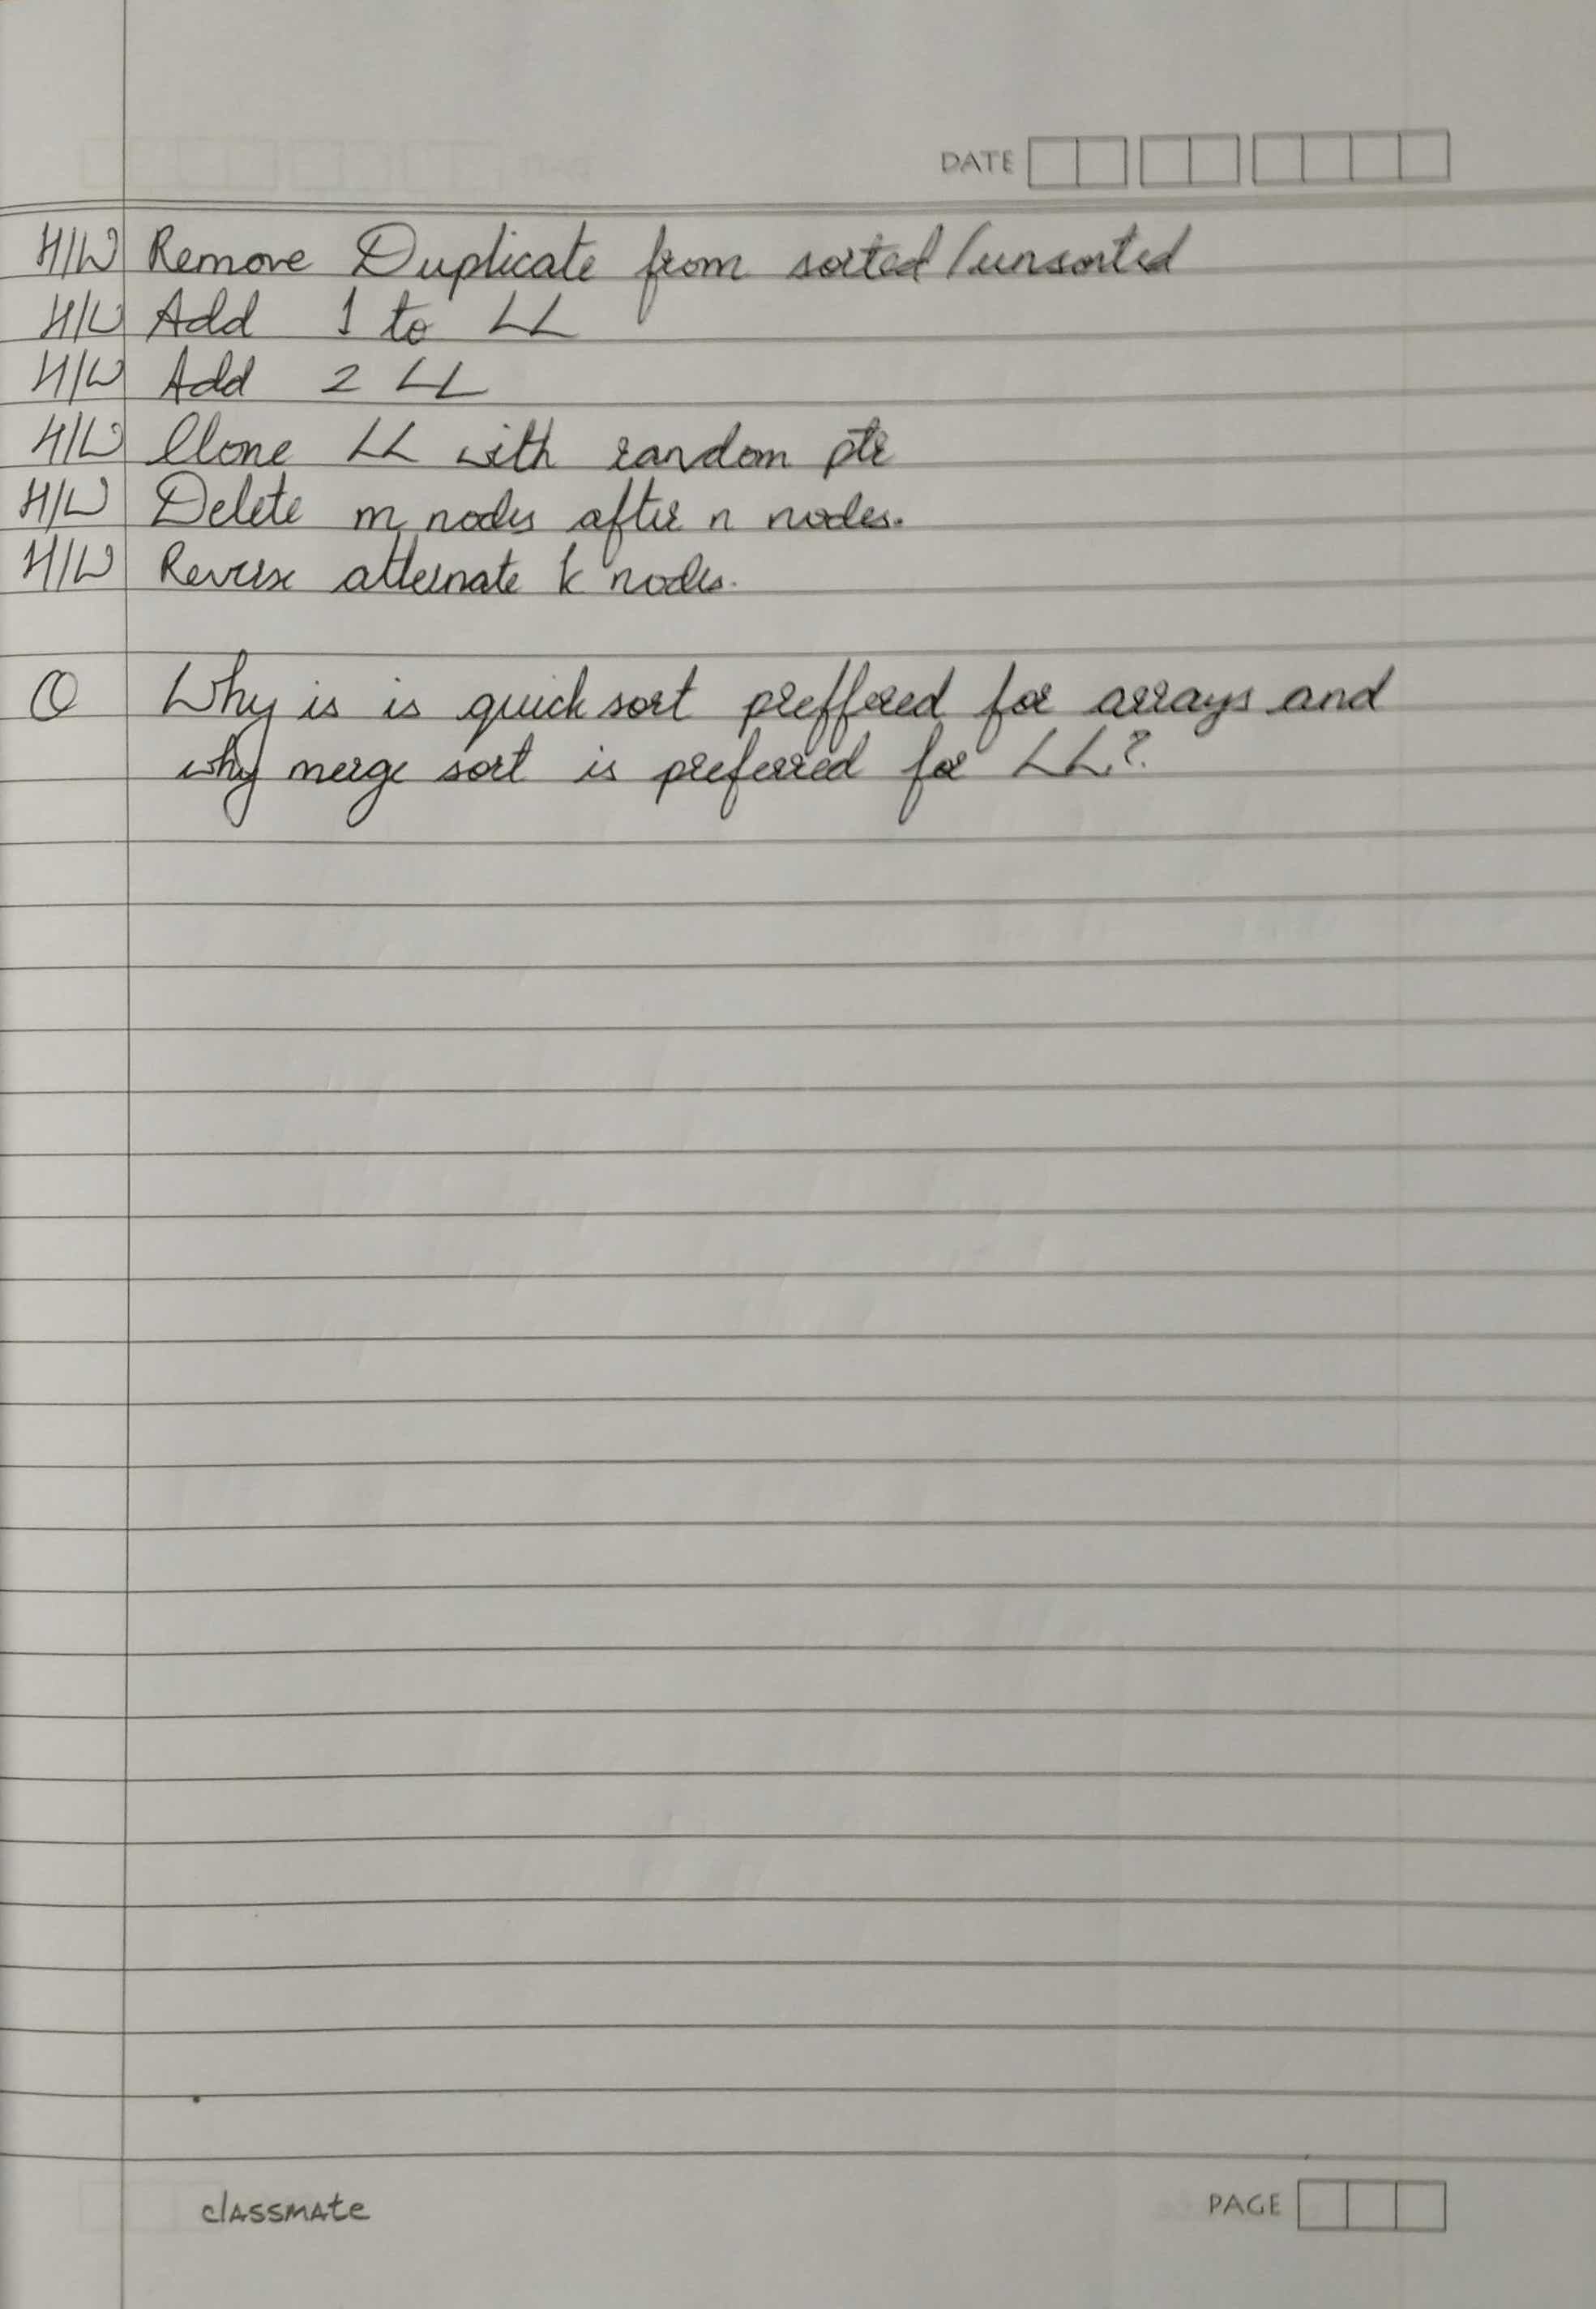 DATE
H/W Remove Duplicate from sorted/unsorted
H/W Add 1 to LL
H/W Add 2 LL
H/W Clone LL with random ptr
H/W Delete m nodes after n nodes.
H/W Reverse alternate k nodes.
Q Why is is quick sort preffered for arrays and
why merge sort is preferred for LL?
classmate
PAGE